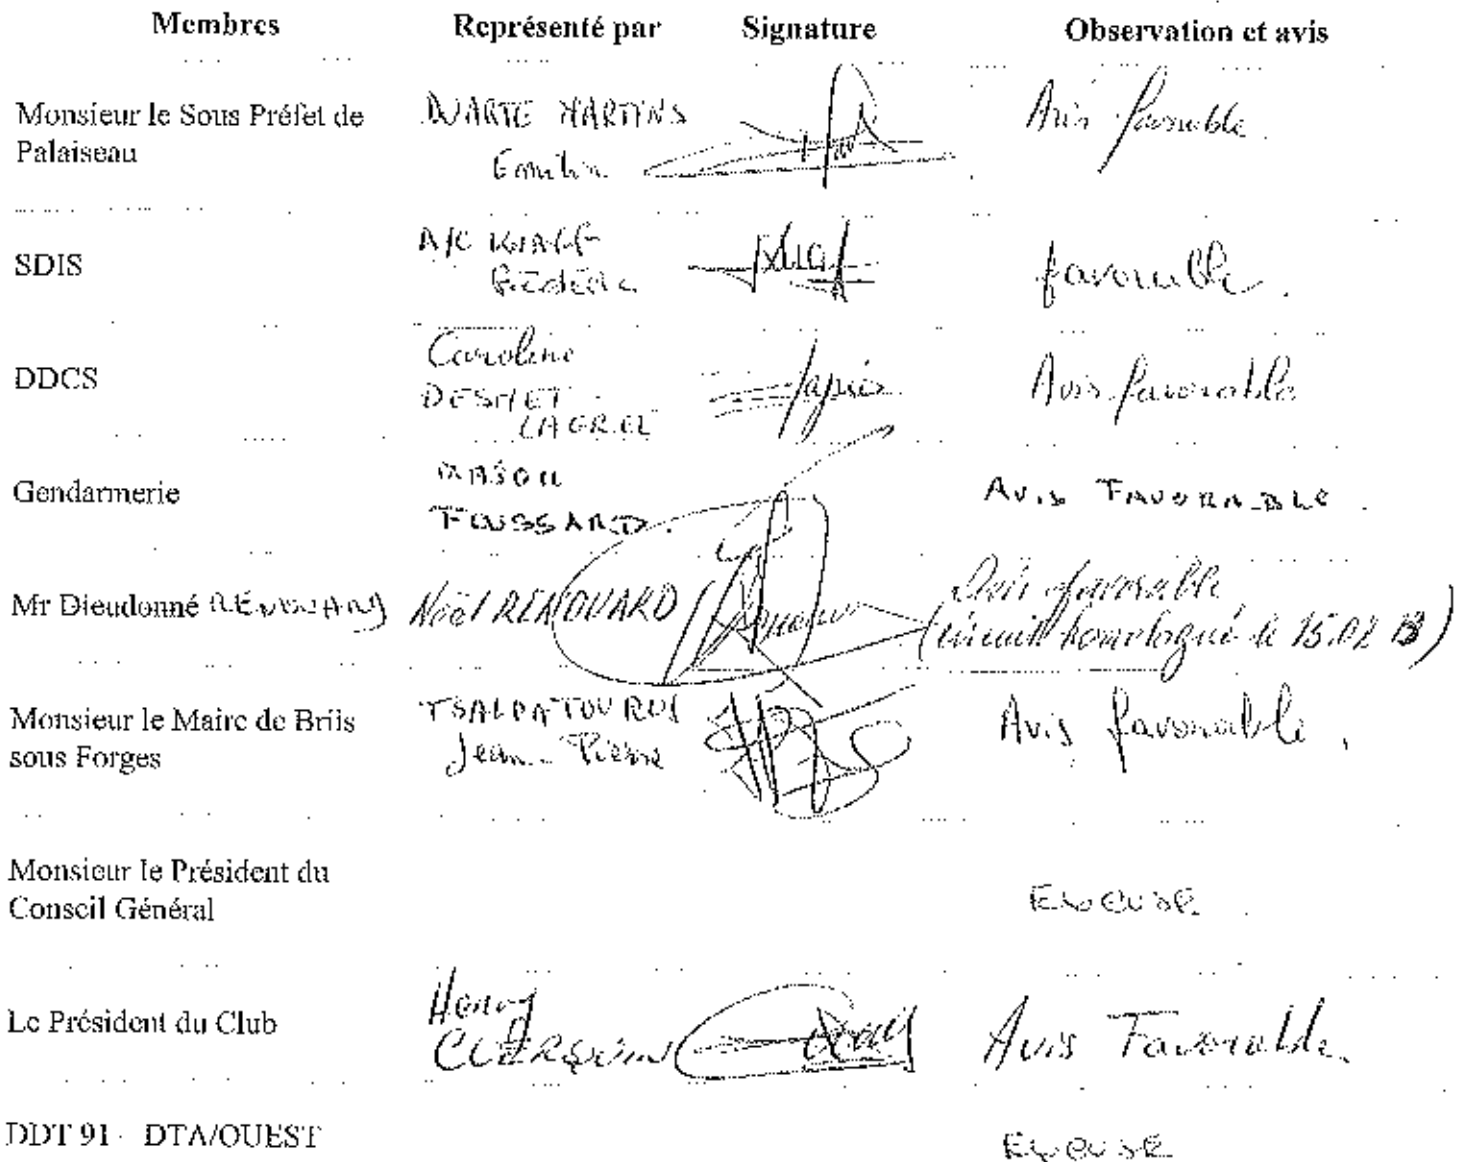 Membres Représenté par Signature Observation et avis
Monsieur le Sous Préfet de Palaiseau DUARTE MARTINS Emilia Avis favorable.
SDIS A/C Frédéric favorable.
DDCS Caroline DESMET LAGREE Avis favorable
Gendarmerie FOUSSARD. AVIS FAVORABLE.
Mr Dieudonné RENOUARD Noël RENOUARD Avis favorable
(circuit homologué le 15.02 13)
Monsieur le Maire de Briis sous Forges TSALPATOUROS Jean-Pierre Avis favorable,
Monsieur le Président du Conseil Général Excusé.
Le Président du Club Henry Avis Favorable.
DDT 91 DTA/OUEST Excusé